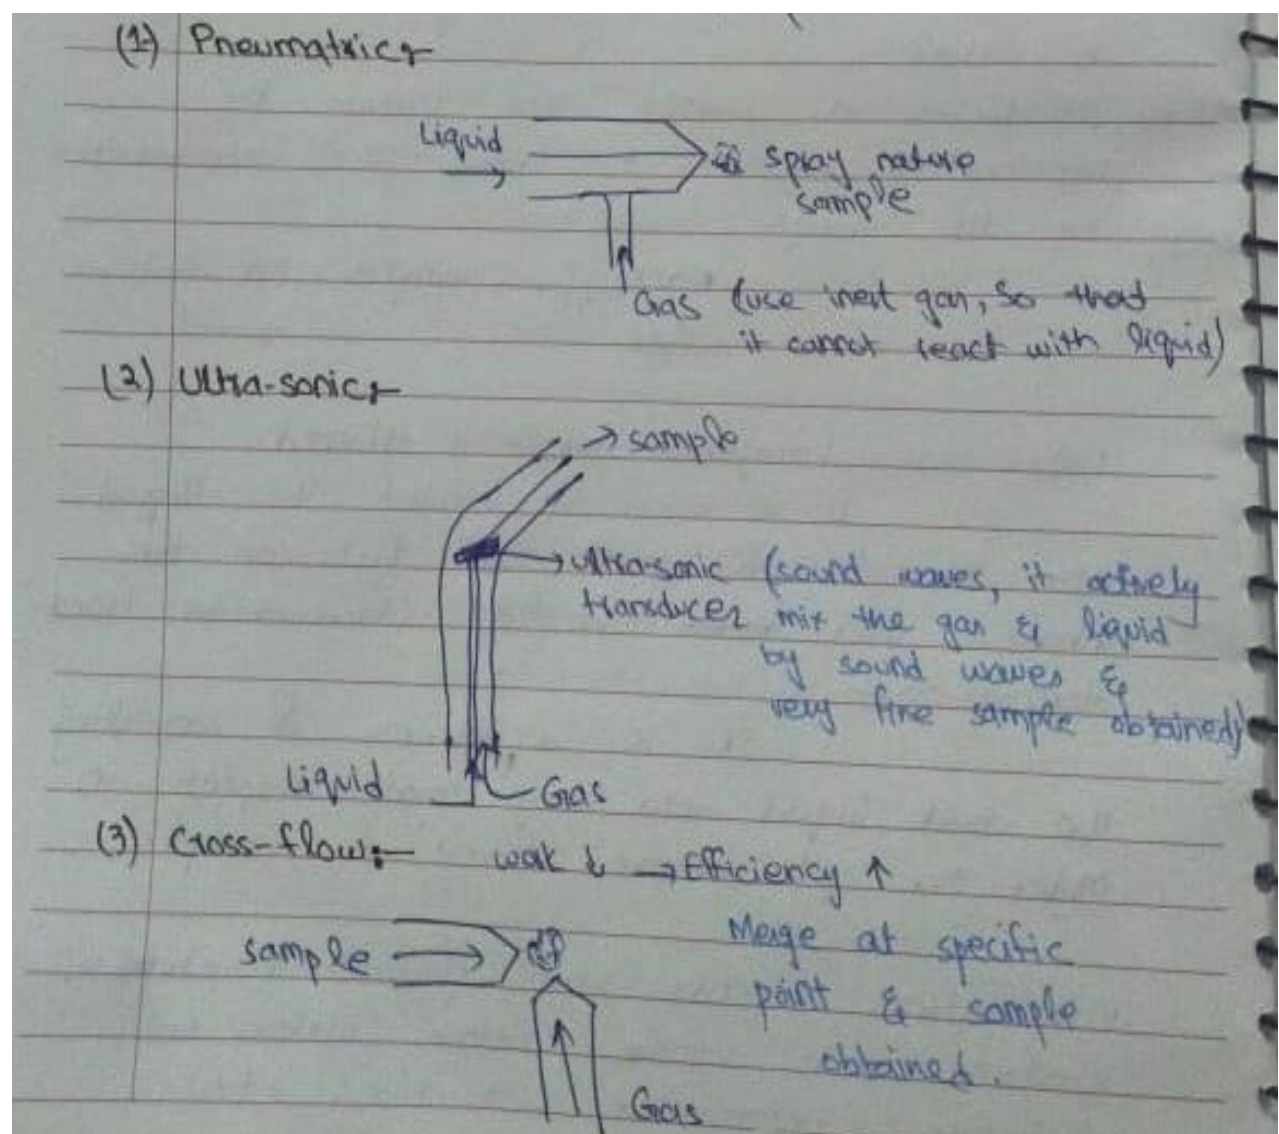 (1) Pneumatric:-
Liquid
→
spray nature
sample
Gas (use inert gas, So that
it cannot react with liquid)
(2) Ultra-sonic:-
→ sample
→ ultra-sonic (sound waves, it actively
transducer mix the gas & liquid
by sound waves &
very fine sample obtained)
Liquid Gas
(3) Cross-flow:- ↓ → Efficiency ↑
sample → Merge at specific
point & sample
obtained.
Gas